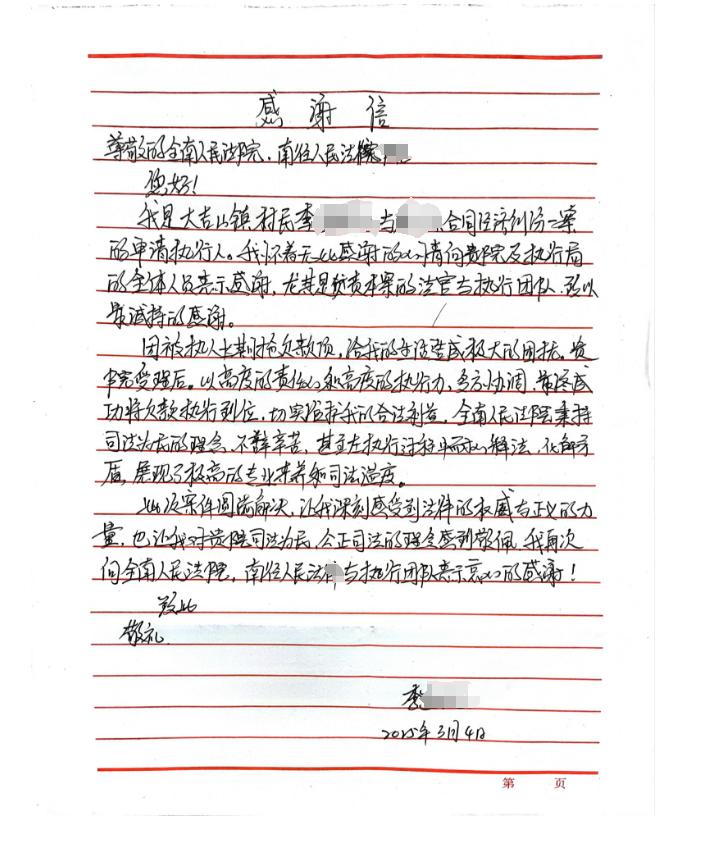 感谢信
尊敬的全南人民法院，南迳人民法
您好！
我是大吉山镇村民李 与 合同经济纠纷一案
的申请执行人。我怀着无比感谢的心情向贵院及执行局
的全体人员表示感谢，尤其是负责本案的法官与执行团队，致以
最诚挚的感谢。
因被执人长期拖欠款项，给我的生活造成极大的困扰。贵
院受理后，以高度的责任心和高度的执行力，多方协调，最终成
功将欠款执行到位，切实维护我的合法利益，全南人民法院秉持
司法为民的理念，不辞辛苦，甚至在执行过程中耐心解法，化解矛
盾，展现了极高的专业素养和司法温度。
此次案件圆满解决，让我深刻感受到法律的权威与正义的力
量，也让我对贵院司法为民，公正司法的理念感到敬佩，我再次
向全南人民法院，南迳人民法 与执行团队表示衷心的感谢！
致此
敬礼
李
2025年3月4日
第 页